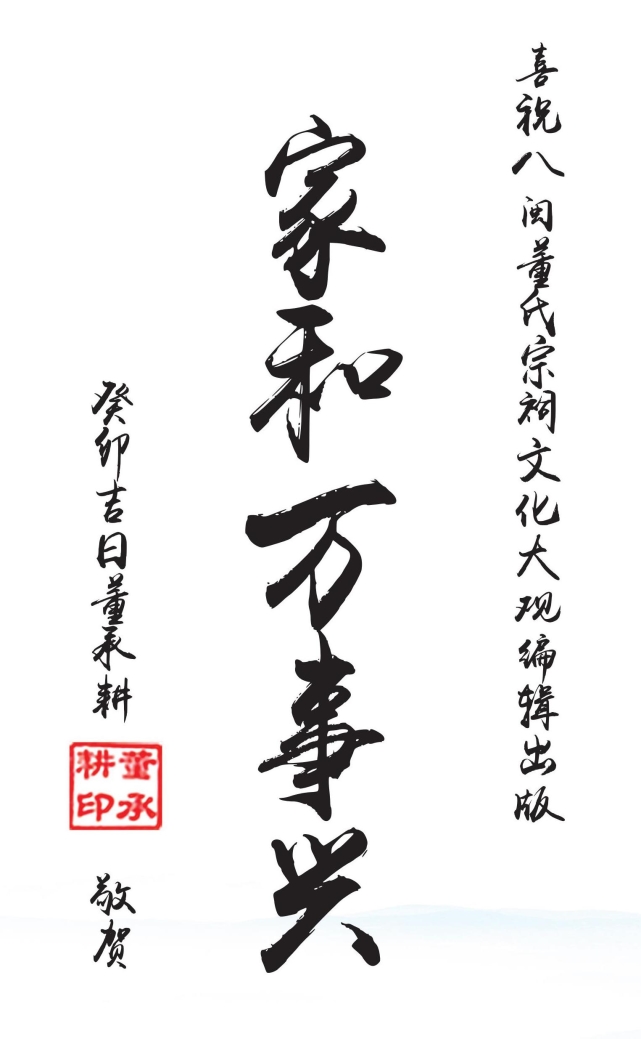 喜祝八闽董氏宗祠文化大观编辑出版
家和万事兴
癸卯吉日董承耕
董承耕印
敬贺